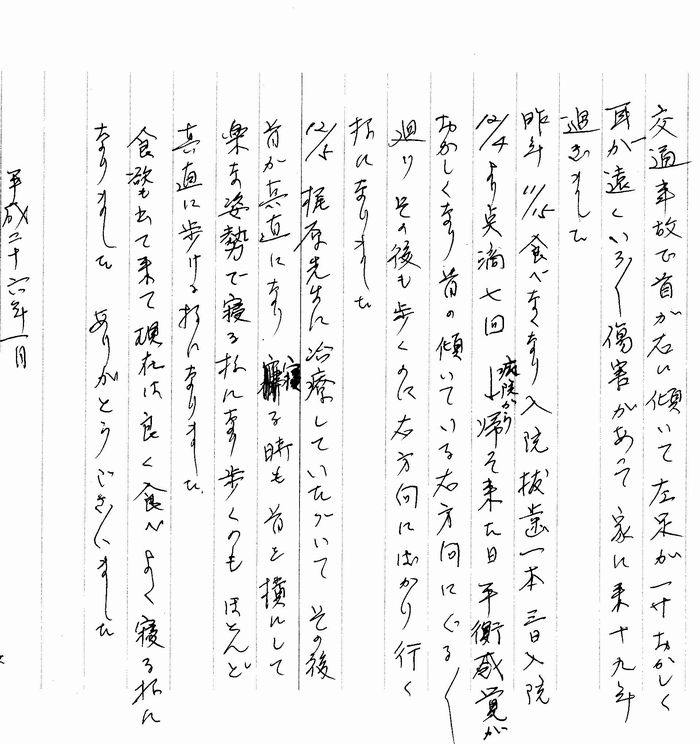 交通事故で首が右に傾いて左足が一寸おかしく
耳が遠くいろ〱傷害があって 家に来十九年
過ぎました
昨年 11/15 食べなくなり入院 抜歯一本 三日入院
12/4より点滴七回 病院から帰って来た日 平衡感覚が
おかしくなり 首の傾いている右方向にぐる〱
廻り その後も歩くのに右方向にばかり行く
様になりました
12/5 梶原先生に治療していただいて その後
首が真直になり 寝る時も 首を横にして
楽な姿勢で寝る様になり 歩くのも ほとんど
真直に歩ける様になりました。
食欲も出て来て 現在は良く食べ よく寝る様に
なりました ありがとうございました
平成二十六年一月